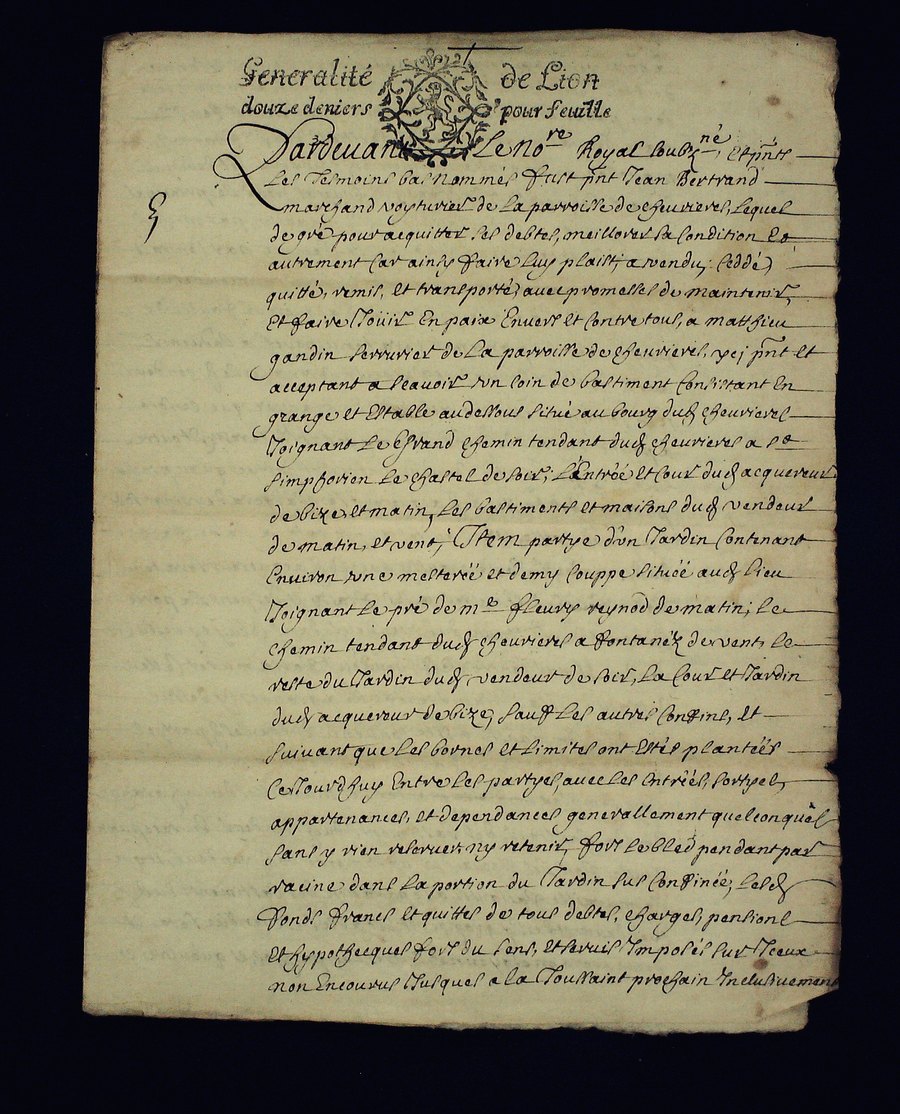 Generalité de Lion
douze deniers pour feuille
Pardevant Le No.re Royal soubz.né, Et pñts
Les Tesmoins bas nommés fust pñt Jean Bertrand
marchand voyturier de La parroisse de chevrieres, Lequel
de gré pour acquitter ses debtes, meillorer sa Condition Et
autrement Car ainsy faire Luy plaist; a vendu, Ceddé,
quitté, remis, Et transporté, avec promesses de maintenir,
Et faire Joüir En paix Envers Et Contre tous, a matthieu
gandin serrurier de La parroisse de chevrieres, ycj pñt Et
acceptant a scavoir un coin de bastiment Consistant En
grange Et Estable au dessous situé au bourg dud chevrieres
Joignant Le Grand chemin tendant dud chevrieres a st
simphorien Le chastel de soir; L'Entréé Et Cour dud acquereur
de bize, et matin, Les bastiments et maisons dud vendeur
de matin, et vent; Item partye d'un Jardin Contenant
Environ une mesteréé et demy Couppe situéé aud Lieu
Joignant Le pré de me fleury reynod de matin; Le
chemin tendant dud chevrieres a fontanéz de vent, Le
reste du Jardin dud vendeur de soir, La Cour et Jardin
dud acquereur de bize, sauf Les autres Confins, Et
suivant que Les bornes Et Limites ont Estés plantéés
Ce Jourd'huy Entre Les partyes, avec Les Entréés, sortyes,
appartenances, et dependances generallement quelconques
sans y rien reserver, ny retenir, fors Le bled pendant par
racine dans La portion du Jardin sus Confinéé, Lesd
fonds francs Et quittes de tous debtes, charges, pensions
Et hypothecques fors du sens, Et servis Imposés sur Iceux
non Encourus Jusques a La Toussaint prochain Inclusivement